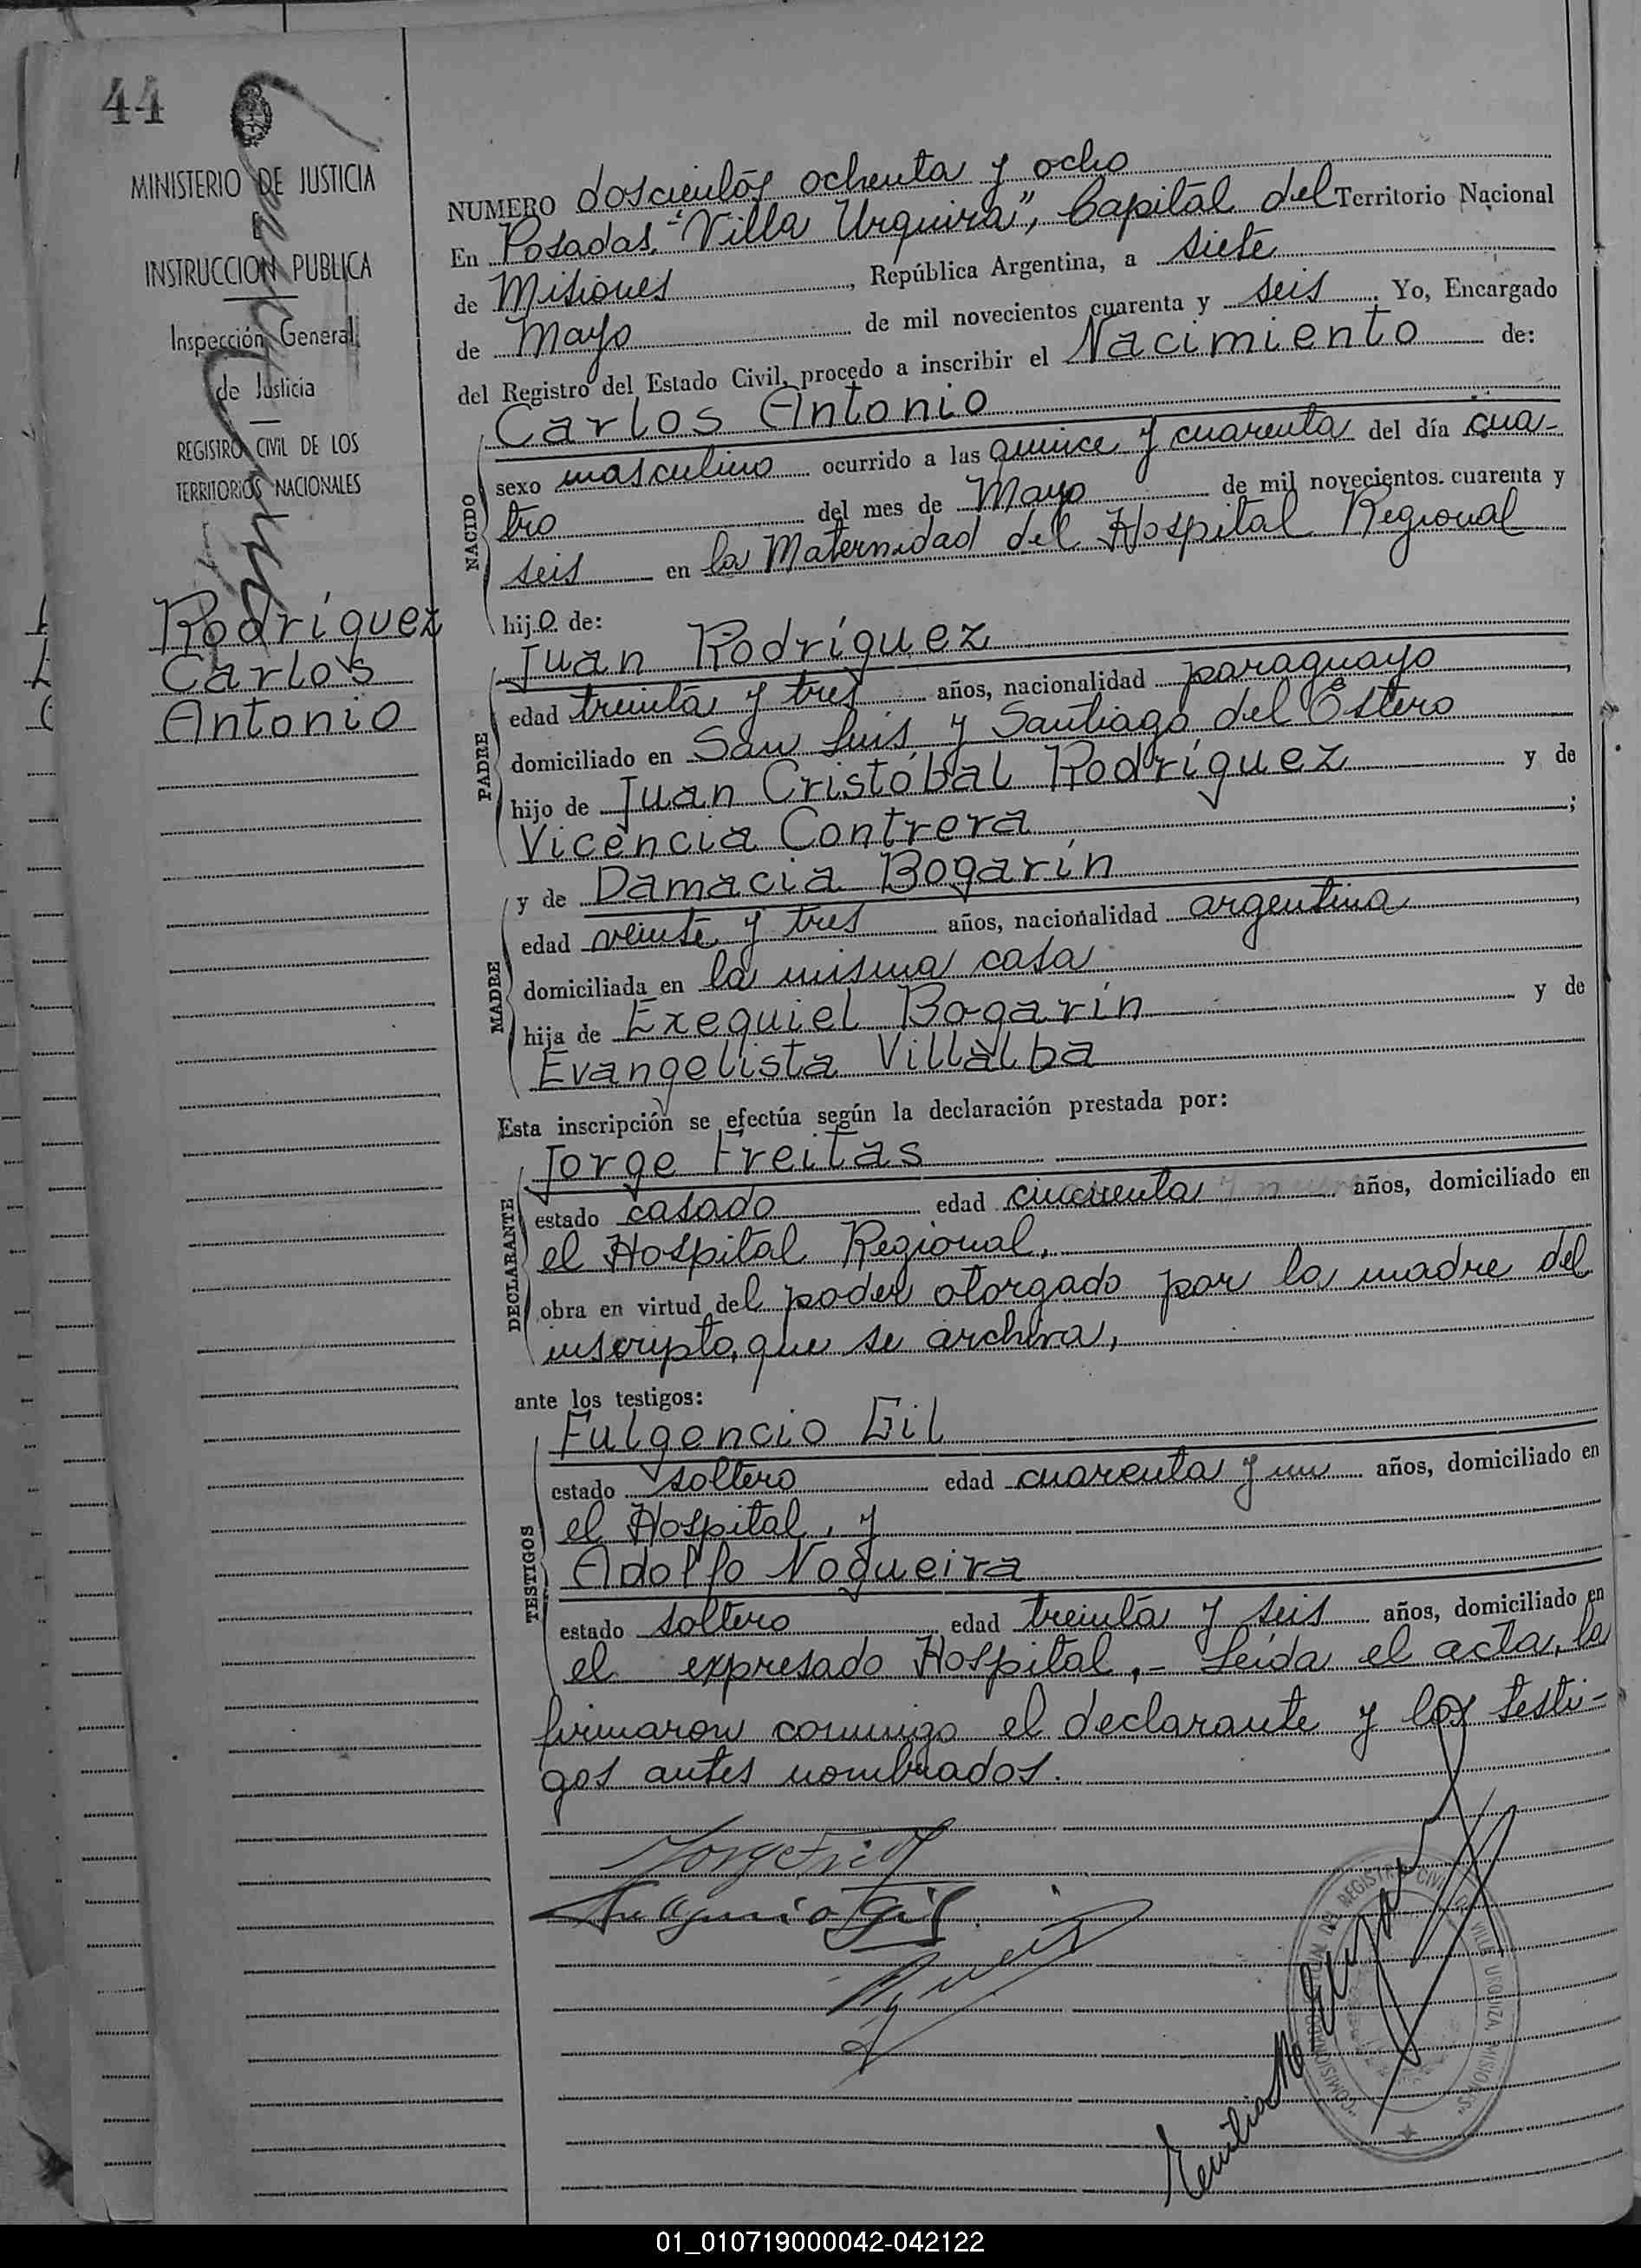 44
MINISTERIO DE JUSTICIA
E
INSTRUCCION PUBLICA
Inspección General
de Justicia
REGISTRO CIVIL DE LOS
TERRITORIOS NACIONALES
Rodríguez
Carlos
Antonio
NUMERO doscientos ochenta y ocho
En Posadas, "Villa Urquiza", Capital del Territorio Nacional
de Misiones, República Argentina, a siete
de Mayo de mil novecientos cuarenta y seis. Yo, Encargado
del Registro del Estado Civil, procedo a inscribir el Nacimiento de:
NACIDO
Carlos Antonio
sexo masculino ocurrido a las quince y cuarenta del día cua-
tro del mes de Mayo de mil novecientos cuarenta y
seis en la Maternidad del Hospital Regional
hijo de:
PADRE
Juan Rodríguez
edad treinta y tres años, nacionalidad paraguayo,
domiciliado en San Luis y Santiago del Estero
hijo de Juan Cristóbal Rodríguez y de
Vicencia Contrera;
MADRE
y de Damacia Bogarín
edad veinte y tres años, nacionalidad argentina,
domiciliada en la misma casa
hija de Exequiel Bogarín y de
Evangelista Villalba
Esta inscripción se efectúa según la declaración prestada por:
DECLARANTE
Jorge Freitas
estado casado edad cincuenta años, domiciliado en
el Hospital Regional,
obra en virtud del poder otorgado por la madre del
inscripto, que se archiva,
ante los testigos:
TESTIGOS
Fulgencio Gil
estado soltero edad cuarenta y un años, domiciliado en
el Hospital, y
Adolfo Nogueira
estado soltero edad treinta y seis años, domiciliado en
el expresado Hospital,- Leída el acta, la
firmaron conmigo el declarante y los testi-
gos antes nombrados.
REGISTRO CIVIL DE VILLA URQUIZA, MISIONES
01_010719000042-042122